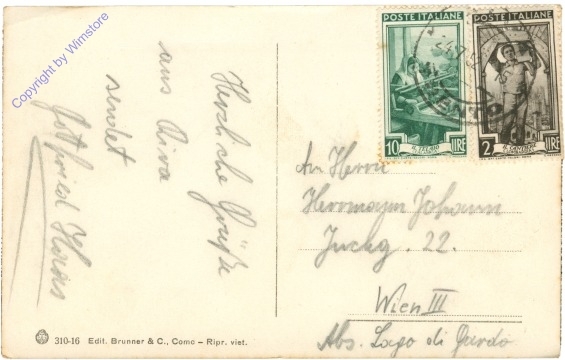 Copyright by Wimstore
Herzliche Grüße
aus Riva
sendet
Gottfried
POSTE ITALIANE
10 LIRE
IL TELAIO
POSTE ITALIANE
2 LIRE
An Herrn
Herrmann Johann
Juchg. 22.
Wien III
Abs. Lago di Garda
310-16 Edit. Brunner & C., Como – Ripr. viet.